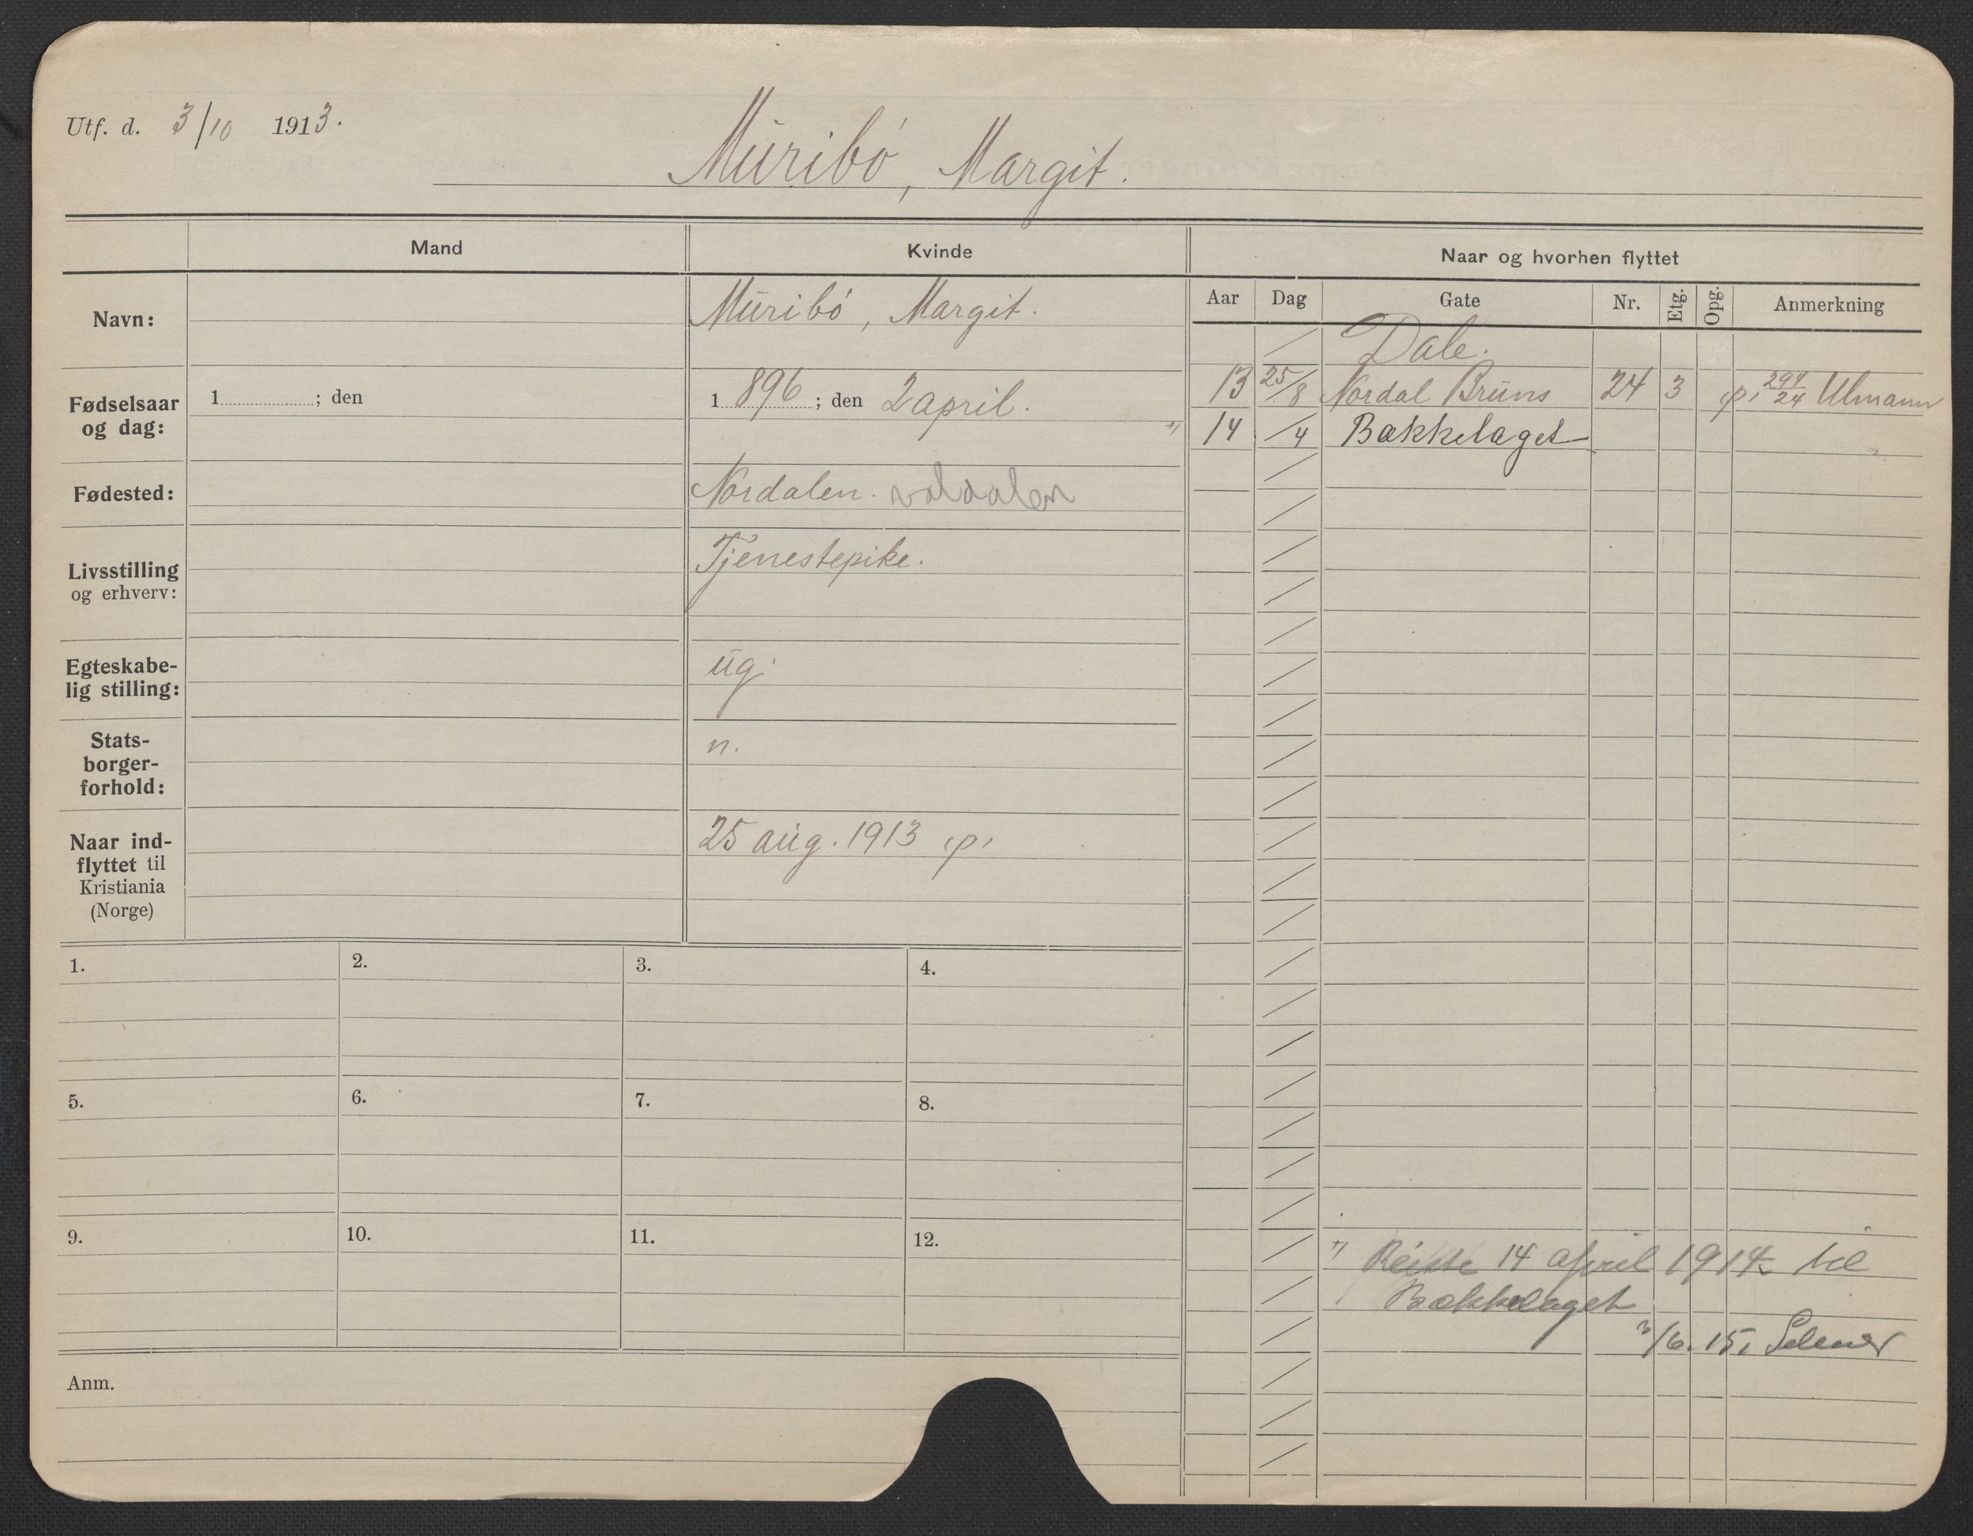 Utf. d. 3/10 1913.
Muribø, Margit.
Mand
Kvinde
Naar og hvorhen flyttet
Aar Dag Gate Nr. Etg. Opg. Anmerkning
Navn:
Muribø, Margit.
Fødselsaar og dag:
1 ; den
1 896 ; den 2 april.
Fødested:
Nordalen. Valdalen
Livsstilling
og erhverv:
Tjenestepike.
Egteskabe-
lig stilling:
ug.
Stats-
borger-
forhold:
n.
Naar ind-
flyttet til
Kristiania
(Norge)
25 aug. 1913 p.
Dale.
13 25/8 Nordal Bruns 24 3 p. 294/24 Ulmann
" 14 /4 Bækkelaget
1. 2. 3. 4.
5. 6. 7. 8.
9. 10. 11. 12.
Anm.
" Reiste 14 april 1914 til
Bækkelaget
3/6. 15, Selmer